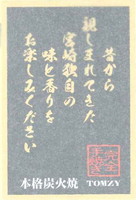 昔から
親しまれてきた
宮崎独自の
味と香りを
お楽しみください
完全
手焼き
本格炭火焼
TOMZY